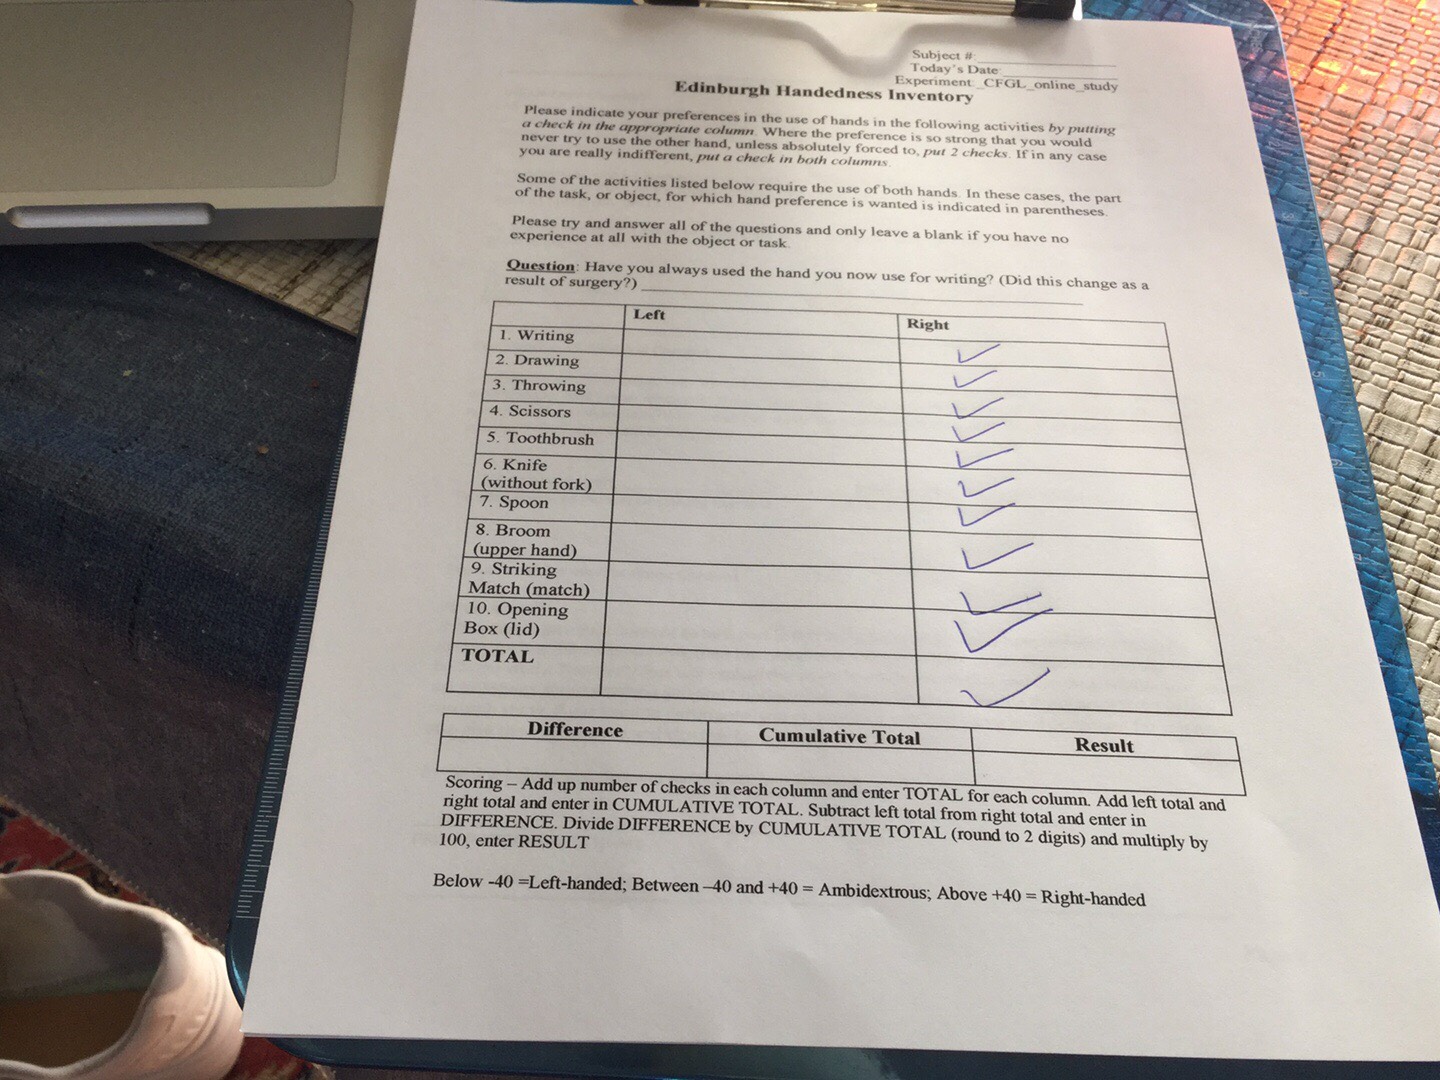 Subject #:
Today's Date
Experiment: _CFGL_online_study
Edinburgh Handedness Inventory
Please indicate your preferences in the use of hands in the following activities by putting
a check in the appropriate column. Where the preference is so strong that you would
never try to use the other hand, unless absolutely forced to, put 2 checks. If in any case
you are really indifferent, put a check in both columns.
Some of the activities listed below require the use of both hands. In these cases, the part
of the task, or object, for which hand preference is wanted is indicated in parentheses.
Please try and answer all of the questions and only leave a blank if you have no
experience at all with the object or task.
Question: Have you always used the hand you now use for writing? (Did this change as a
result of surgery?)
Left Right
1. Writing ✓
2. Drawing ✓
3. Throwing ✓
4. Scissors ✓
5. Toothbrush ✓
6. Knife
(without fork) ✓
7. Spoon ✓
8. Broom
(upper hand) ✓
9. Striking
Match (match) ✓
10. Opening
Box (lid) ✓
TOTAL ✓
Difference Cumulative Total Result
Scoring – Add up number of checks in each column and enter TOTAL for each column. Add left total and
right total and enter in CUMULATIVE TOTAL. Subtract left total from right total and enter in
DIFFERENCE. Divide DIFFERENCE by CUMULATIVE TOTAL (round to 2 digits) and multiply by
100, enter RESULT
Below -40 =Left-handed; Between –40 and +40 = Ambidextrous; Above +40 = Right-handed